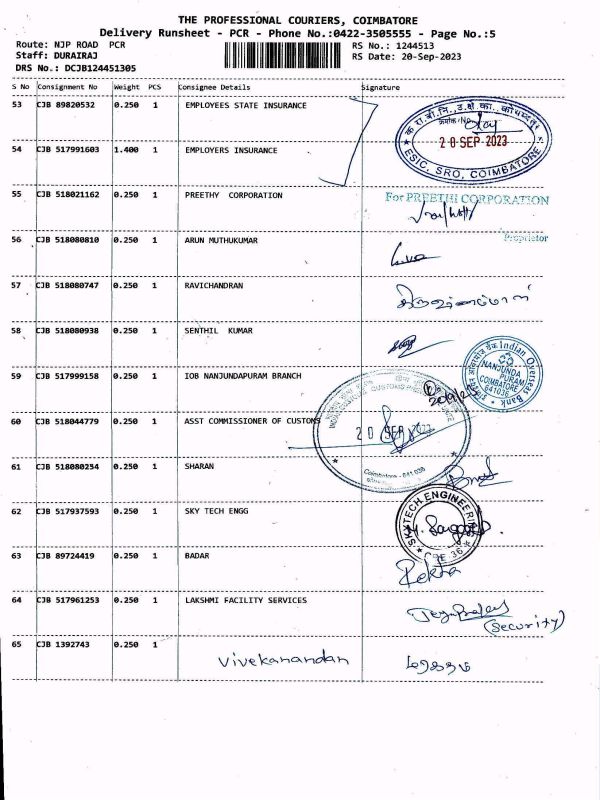 THE PROFESSIONAL COURIERS, COIMBATORE
Delivery Runsheet - PCR - Phone No.:0422-3505555 - Page No.:5
Route: NJP ROAD PCR RS No.: 1244513
Staff: DURAIRAJ RS Date: 20-Sep-2023
DRS No.: DCJB124451305
S No Consignment No Weight PCS Consignee Details Signature
53 CJB 89820532 0.250 1 EMPLOYEES STATE INSURANCE
20 SEP 2023
ESIC, SRO, COIMBATORE
54 CJB 517991603 1.400 1 EMPLOYERS INSURANCE
55 CJB 518021162 0.250 1 PREETHY CORPORATION
For PREETHI CORPORATION
Proprietor
56 CJB 518080810 0.250 1 ARUN MUTHUKUMAR
57 CJB 518080747 0.250 1 RAVICHANDRAN
58 CJB 518080938 0.250 1 SENTHIL KUMAR
Indian Overseas Bank
NANJUNDA
PURAM
COIMBATORE
641036
59 CJB 517999158 0.250 1 IOB NANJUNDAPURAM BRANCH
60 CJB 518044779 0.250 1 ASST COMMISSIONER OF CUSTOMS
20 SEP 2023
Coimbatore - 641 036
61 CJB 518080254 0.250 1 SHARAN
62 CJB 517937593 0.250 1 SKY TECH ENGG
SKYTECH ENGINEERING
CBE.36
63 CJB 89724419 0.250 1 BADAR
Rekha
64 CJB 517961253 0.250 1 LAKSHMI FACILITY SERVICES
(Security)
65 CJB 1392743 0.250 1
Vivekanandan